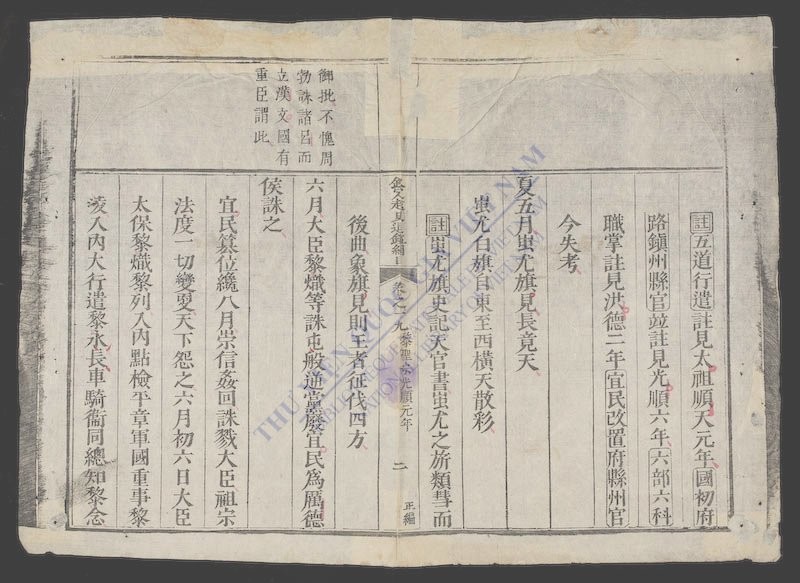 註五道行遣註見太祖順天元年國初府
路鎮州縣官竝註見光順六年六部六科
職掌註見洪德二年宜民改置府縣州官
今失考
夏五月蚩尤旗見長竟天
蚩尤白旗自東至西橫天散彩
註蚩尤旗史記天官書蚩尤之旂類彗而
後曲象旗見則王者征伐四方
六月大臣黎熾等誅屯般逋黨廢宜民爲厲德
侯誅之
宜民篡位纔八月崇信姦回誅戮大臣祖宗
法度一切變更天下怨之六月初六日大臣
太保黎熾黎列入內點檢平章軍國重事黎
淩入內大行遣黎永長車騎衞同總知黎念
御批不愧周
勃誅諸呂而
立漢文國有
重臣謂此
卷之十九
黎聖宗光順元年
二
正編
THƯ VIỆN QUỐC GIA VIỆT NAM